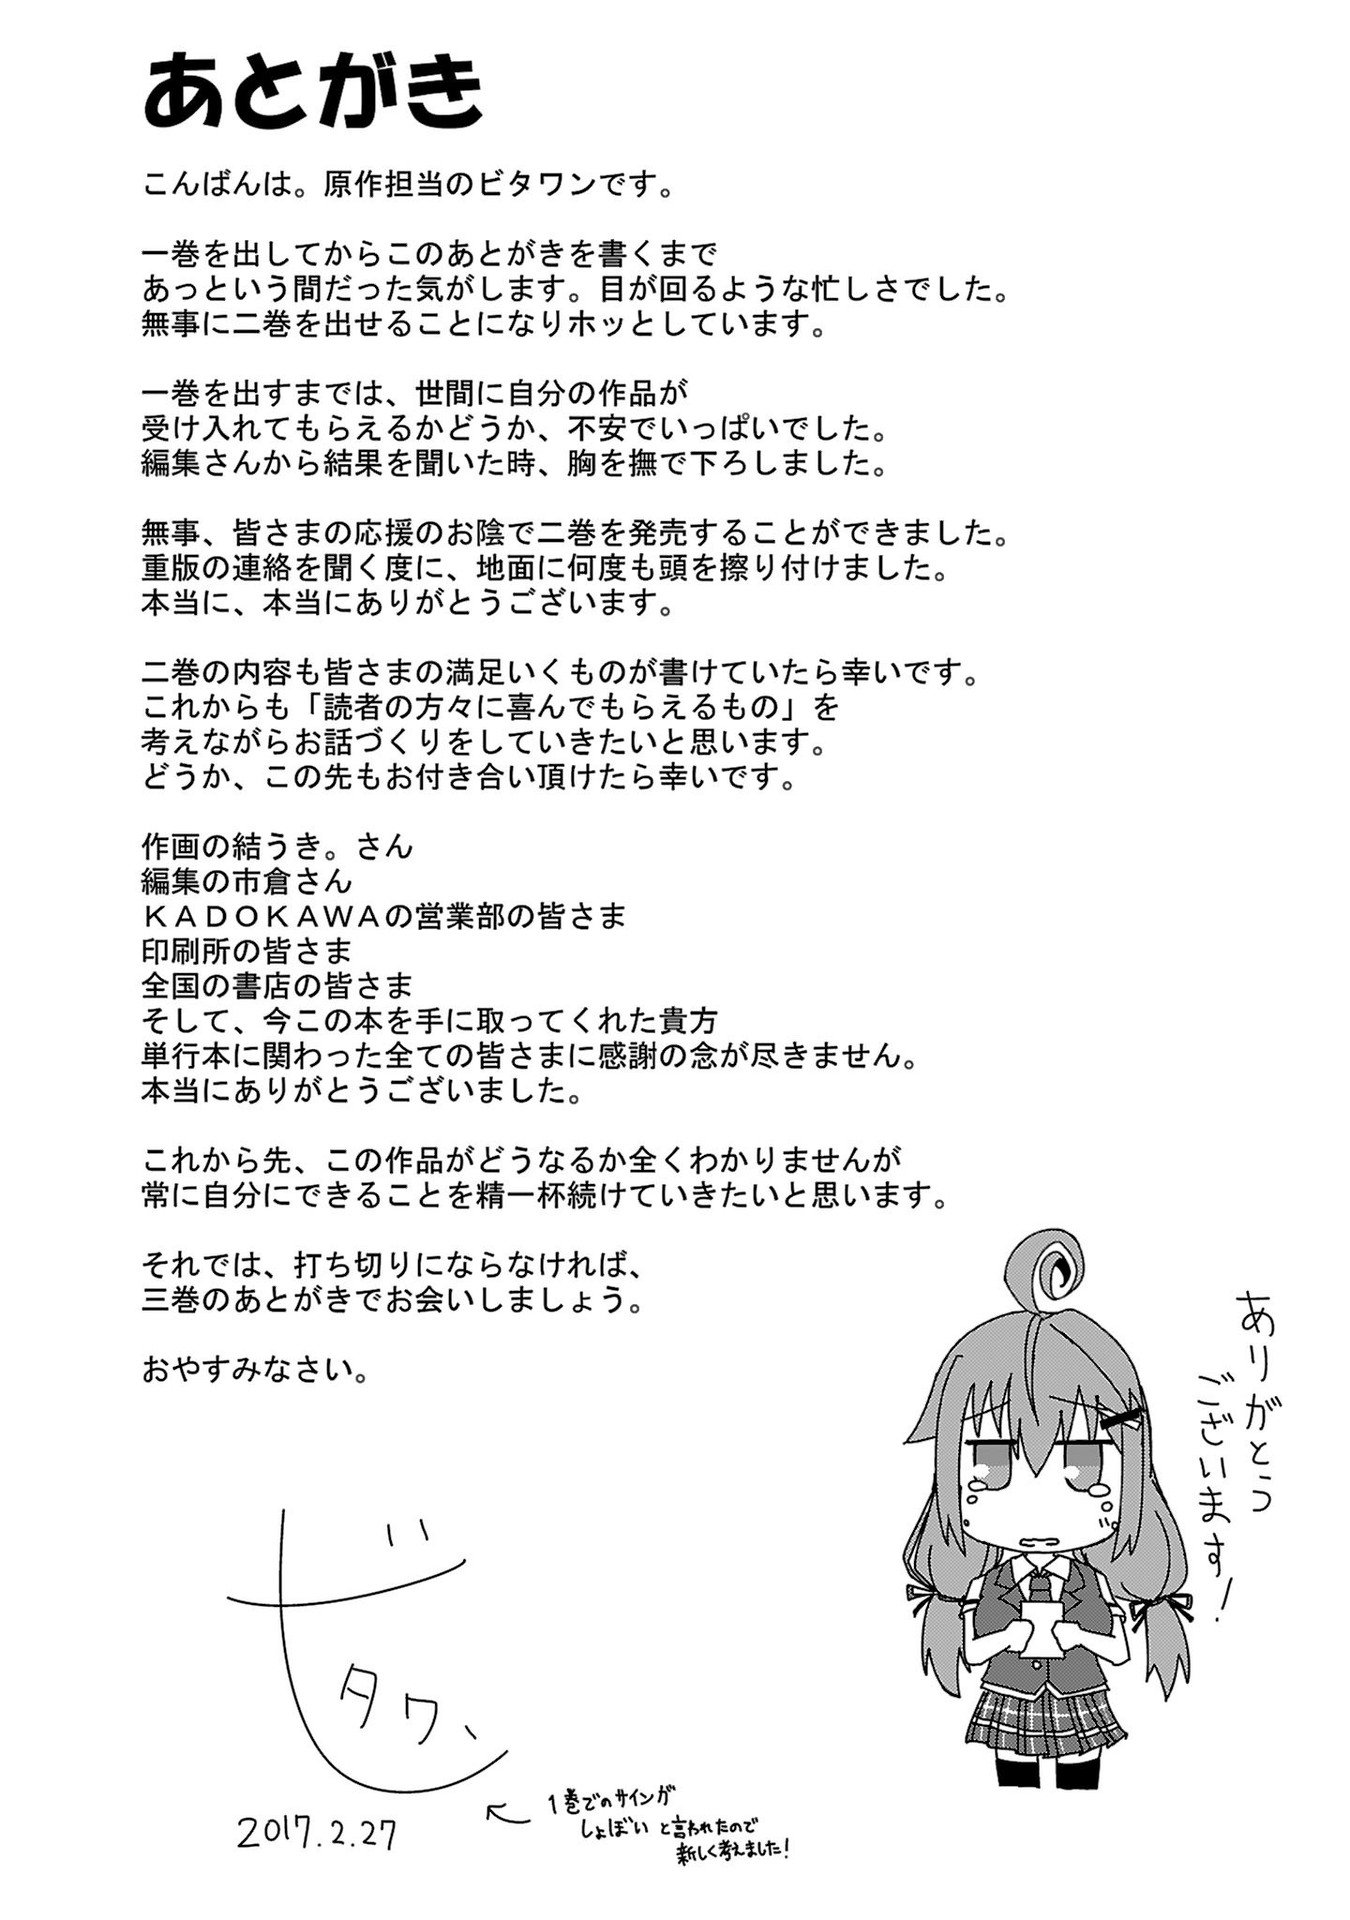 あとがき
こんばんは。原作担当のビタワンです。
一巻を出してからこのあとがきを書くまで
あっという間だった気がします。目が回るような忙しさでした。
無事に二巻を出せることになりホッとしています。
一巻を出すまでは、世間に自分の作品が
受け入れてもらえるかどうか、不安でいっぱいでした。
編集さんから結果を聞いた時、胸を撫で下ろしました。
無事、皆さまの応援のお陰で二巻を発売することができました。
重版の連絡を聞く度に、地面に何度も頭を擦り付けました。
本当に、本当にありがとうございます。
二巻の内容も皆さまの満足いくものが書けていたら幸いです。
これからも「読者の方々に喜んでもらえるもの」を
考えながらお話づくりをしていきたいと思います。
どうか、この先もお付き合い頂けたら幸いです。
作画の結うき。さん
編集の市倉さん
ＫＡＤＯＫＡＷＡの営業部の皆さま
印刷所の皆さま
全国の書店の皆さま
そして、今この本を手に取ってくれた貴方
単行本に関わった全ての皆さまに感謝の念が尽きません。
本当にありがとうございました。
これから先、この作品がどうなるか全くわかりませんが
常に自分にできることを精一杯続けていきたいと思います。
それでは、打ち切りにならなければ、
三巻のあとがきでお会いしましょう。
おやすみなさい。
ありがとう
ございます!
ビタワン
2017.2.27
1巻でのサインが
しょぼいと言われたので
新しく考えました!